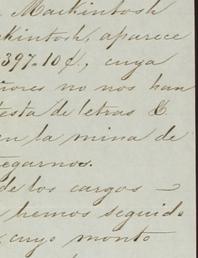 Mackintosh
kintosh, aparece
397-10 ¢, cuya
ñores no nos han
esta de letras &
en la mina de
egarnos.
de los cargos –
hemos seguido
cuyo monto